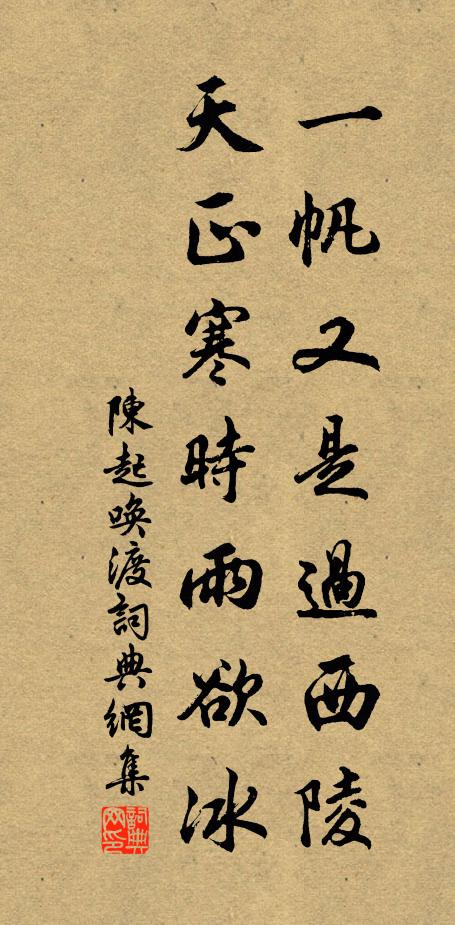 一帆又是過西陵
天正寒時雨欲冰
陳起喚渡詞典網集
詞典網印